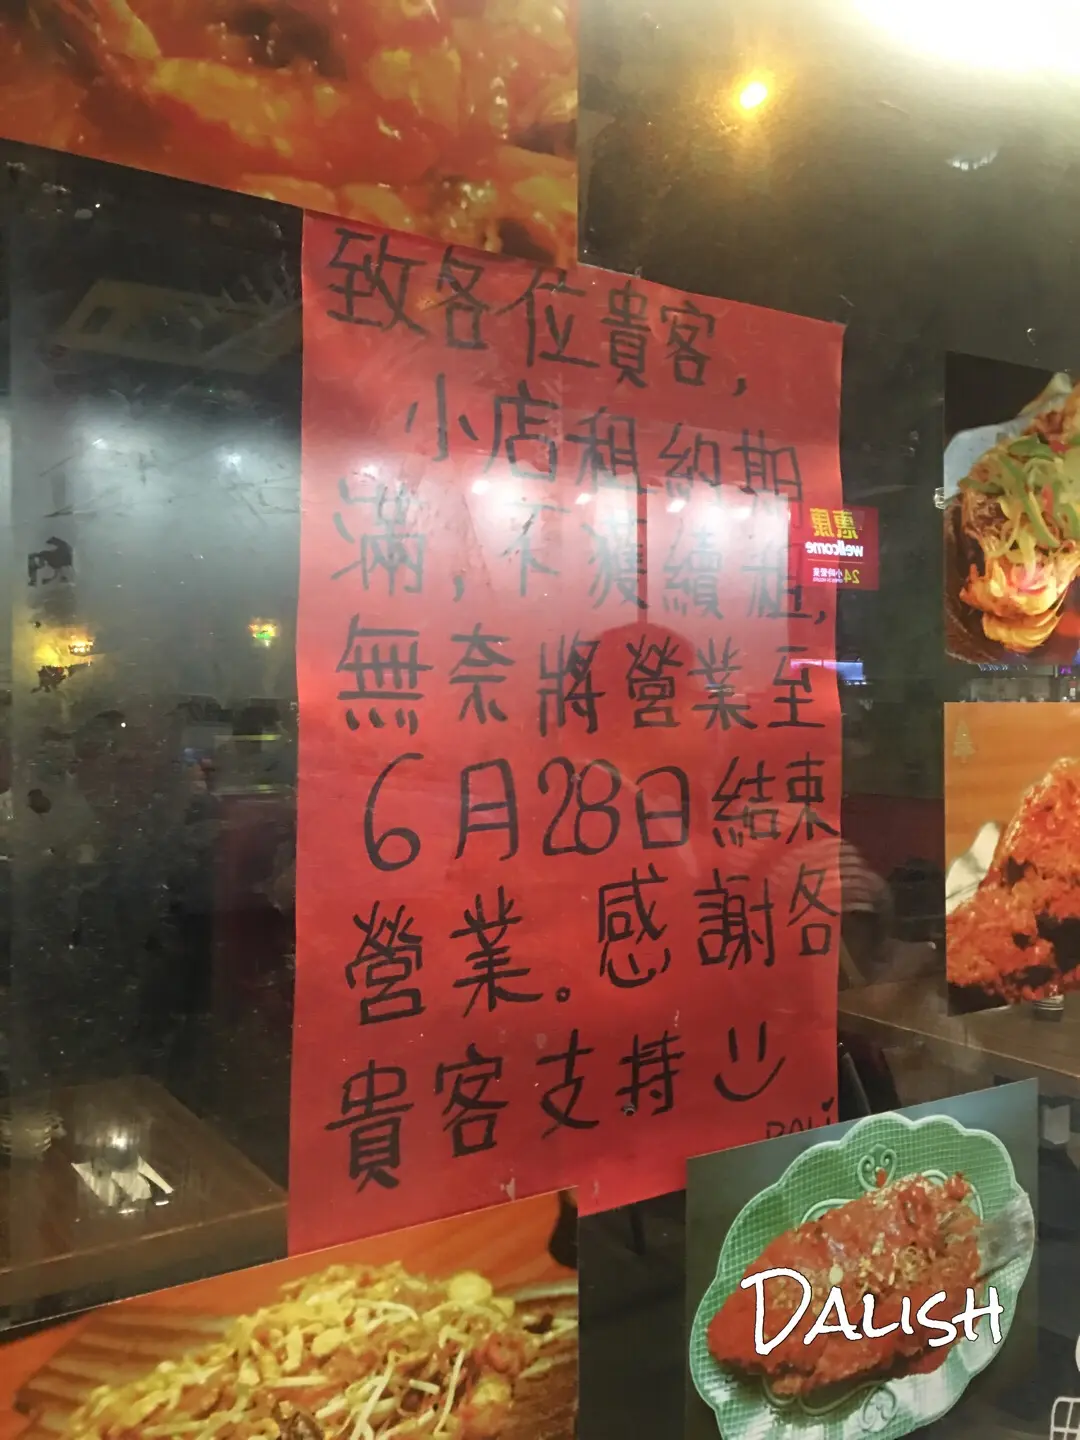 致各位貴客,
小店租約期
滿,不獲續租,
無奈將營業至
6月28日結束
營業。感謝各
貴客支持
惠康
wellcome
24小時營業
DALISH